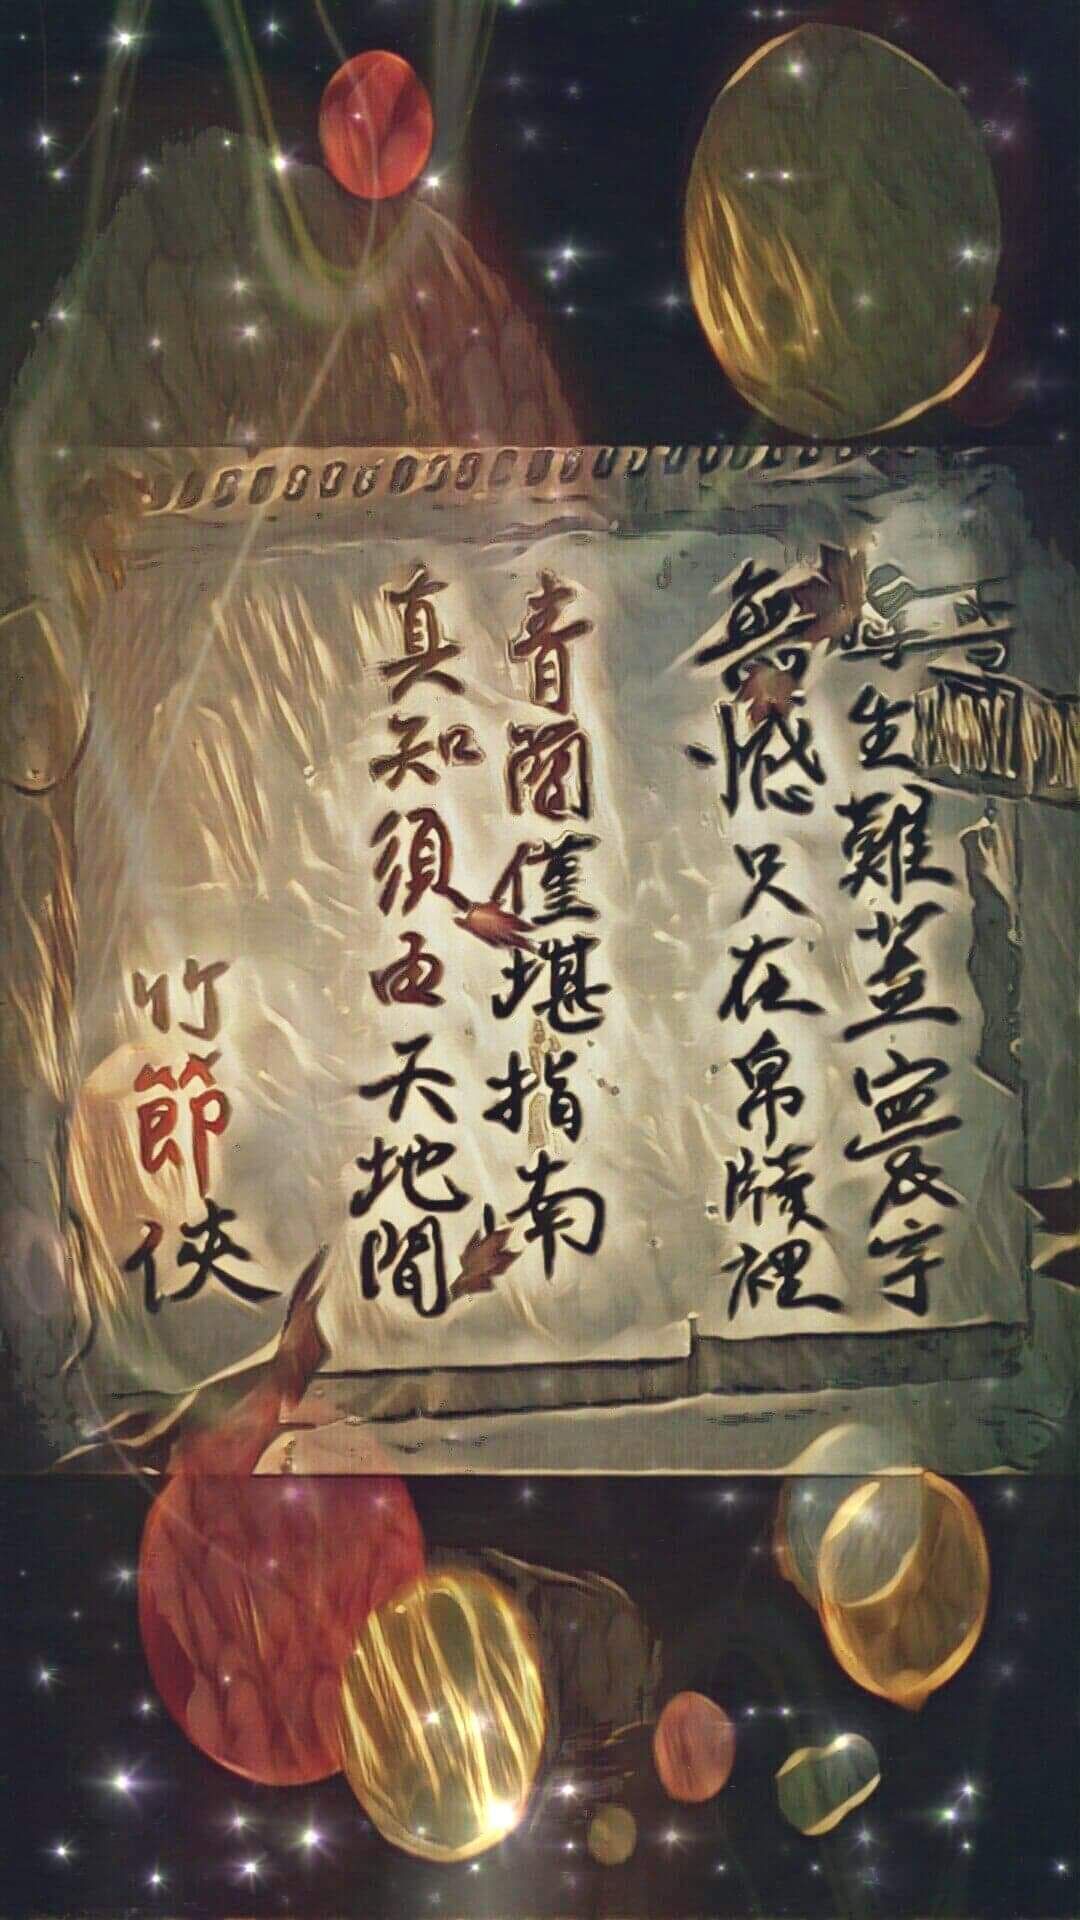 生難盖寰宇
無憾只在帛牘裡
青簡僅堪指南
真知須由天地間
竹節俠